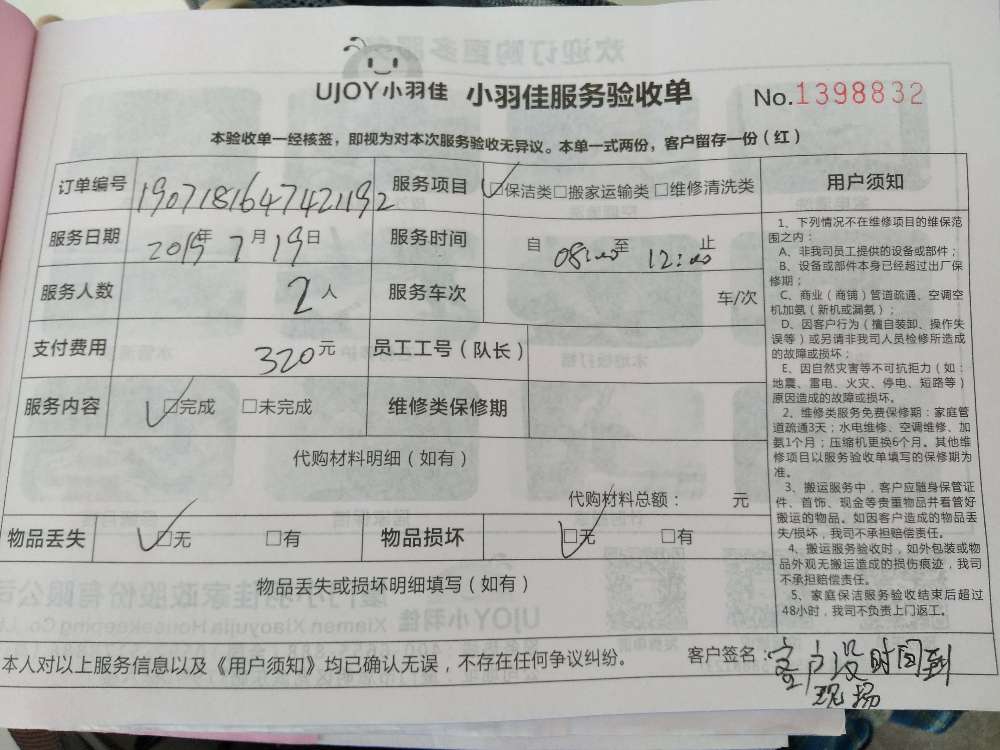 UJOY小羽佳 小羽佳服务验收单 No.1398832
本验收单一经核签，即视为对本次服务验收无异议。本单一式两份，客户留存一份（红）
订单编号 1907181647421192 服务项目 □保洁类□搬家运输类 □维修清洗类
服务日期 2019年 7月19日 服务时间 自 08:00至 12:00 止
服务人数 2人 服务车次 车/次
支付费用 320元 员工工号（队长）
服务内容 □完成 □未完成 维修类保修期
代购材料明细（如有）
代购材料总额： 元
物品丢失 □无 □有 物品损坏 □无 □有
物品丢失或损坏明细填写（如有）
用户须知
1、下列情况不在维修项目的维保范
围之内：
A、非我司员工提供的设备或部件；
B、设备或部件本身已经超过出厂保
修期；
C、商业（商铺）管道疏通、空调空
机加氨（新机或漏氨）；
D、因客户行为（擅自装卸、操作失
误等）或另请非我司人员检修所造成
的故障或损坏；
E、因自然灾害等不可抗拒力（如：
地震、雷电、火灾、停电、短路等）
原因造成的故障或损坏。
2、维修类服务免费保修期：家庭管
道疏通3天；水电维修、空调维修、加
氨1个月；压缩机更换6个月。其他维
修项目以服务验收单填写的保修期为
准。
3、搬运服务中，客户应随身保管证
件、首饰、现金等贵重物品并看管好
搬运的物品。如因客户造成的物品丢
失/损坏，我司不承担赔偿责任。
4、搬运服务验收时，如外包装或物
品外观无搬运造成的损伤痕迹，我司
不承担赔偿责任。
5、家庭保洁服务验收结束后超过
48小时，我司不负责上门返工。
本人对以上服务信息以及《用户须知》均已确认无误，不存在任何争议纠纷。 客户签名：客户没时间到
现场